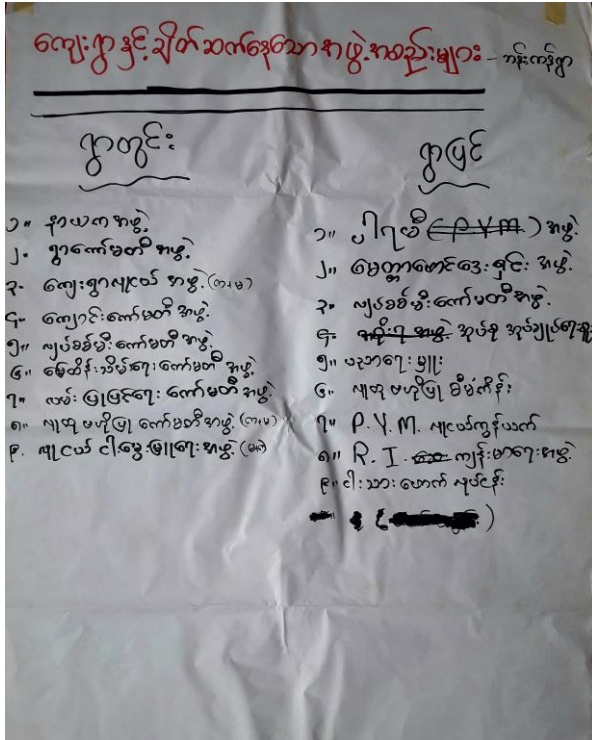 ကျေးရွာနှင့်ချိတ်ဆက်နေသောအဖွဲ့အစည်းများ - ဘန်းကန်ရွာ
ရွာတွင်း
၁။ နာယကအဖွဲ့
၂- ရွာကော်မတီအဖွဲ့
၃- ကျေးရွာလူငယ်အဖွဲ့ (ကျ+မ)
၄- ကျောင်းကော်မတီအဖွဲ့
၅။ လျှပ်စစ်မီးကော်မတီအဖွဲ့
၆။ မြေထိန်းသိမ်းရေးကော်မတီအဖွဲ့
၇- လမ်းပြုပြင်ရေးကော်မတီအဖွဲ့
၈။ လူထုဗဟိုပြုကော်မတီအဖွဲ့ (ကျ+မ)
၉- လူငယ်ငါးမွေးမြူရေးအဖွဲ့
ရွာပြင်
၁။ ပါရမီ (P.Y.M.) အဖွဲ့
၂။ မေတ္တာမောင်ဒေးရှင်းအဖွဲ့
၃- လျှပ်စစ်မီးကော်မတီအဖွဲ့
၄- အုပ်စုအုပ်ချုပ်ရေးမှူး
၅။ ပညာရေးမှူး
၆။ လူထုဗဟိုပြုစီမံကိန်း
၇။ P.Y.M. လူငယ်ကွန်ယက်
၈။ R.I. ကျန်းမာရေးအဖွဲ့
၉။ ငါးသားဖောက်လုပ်ငန်း